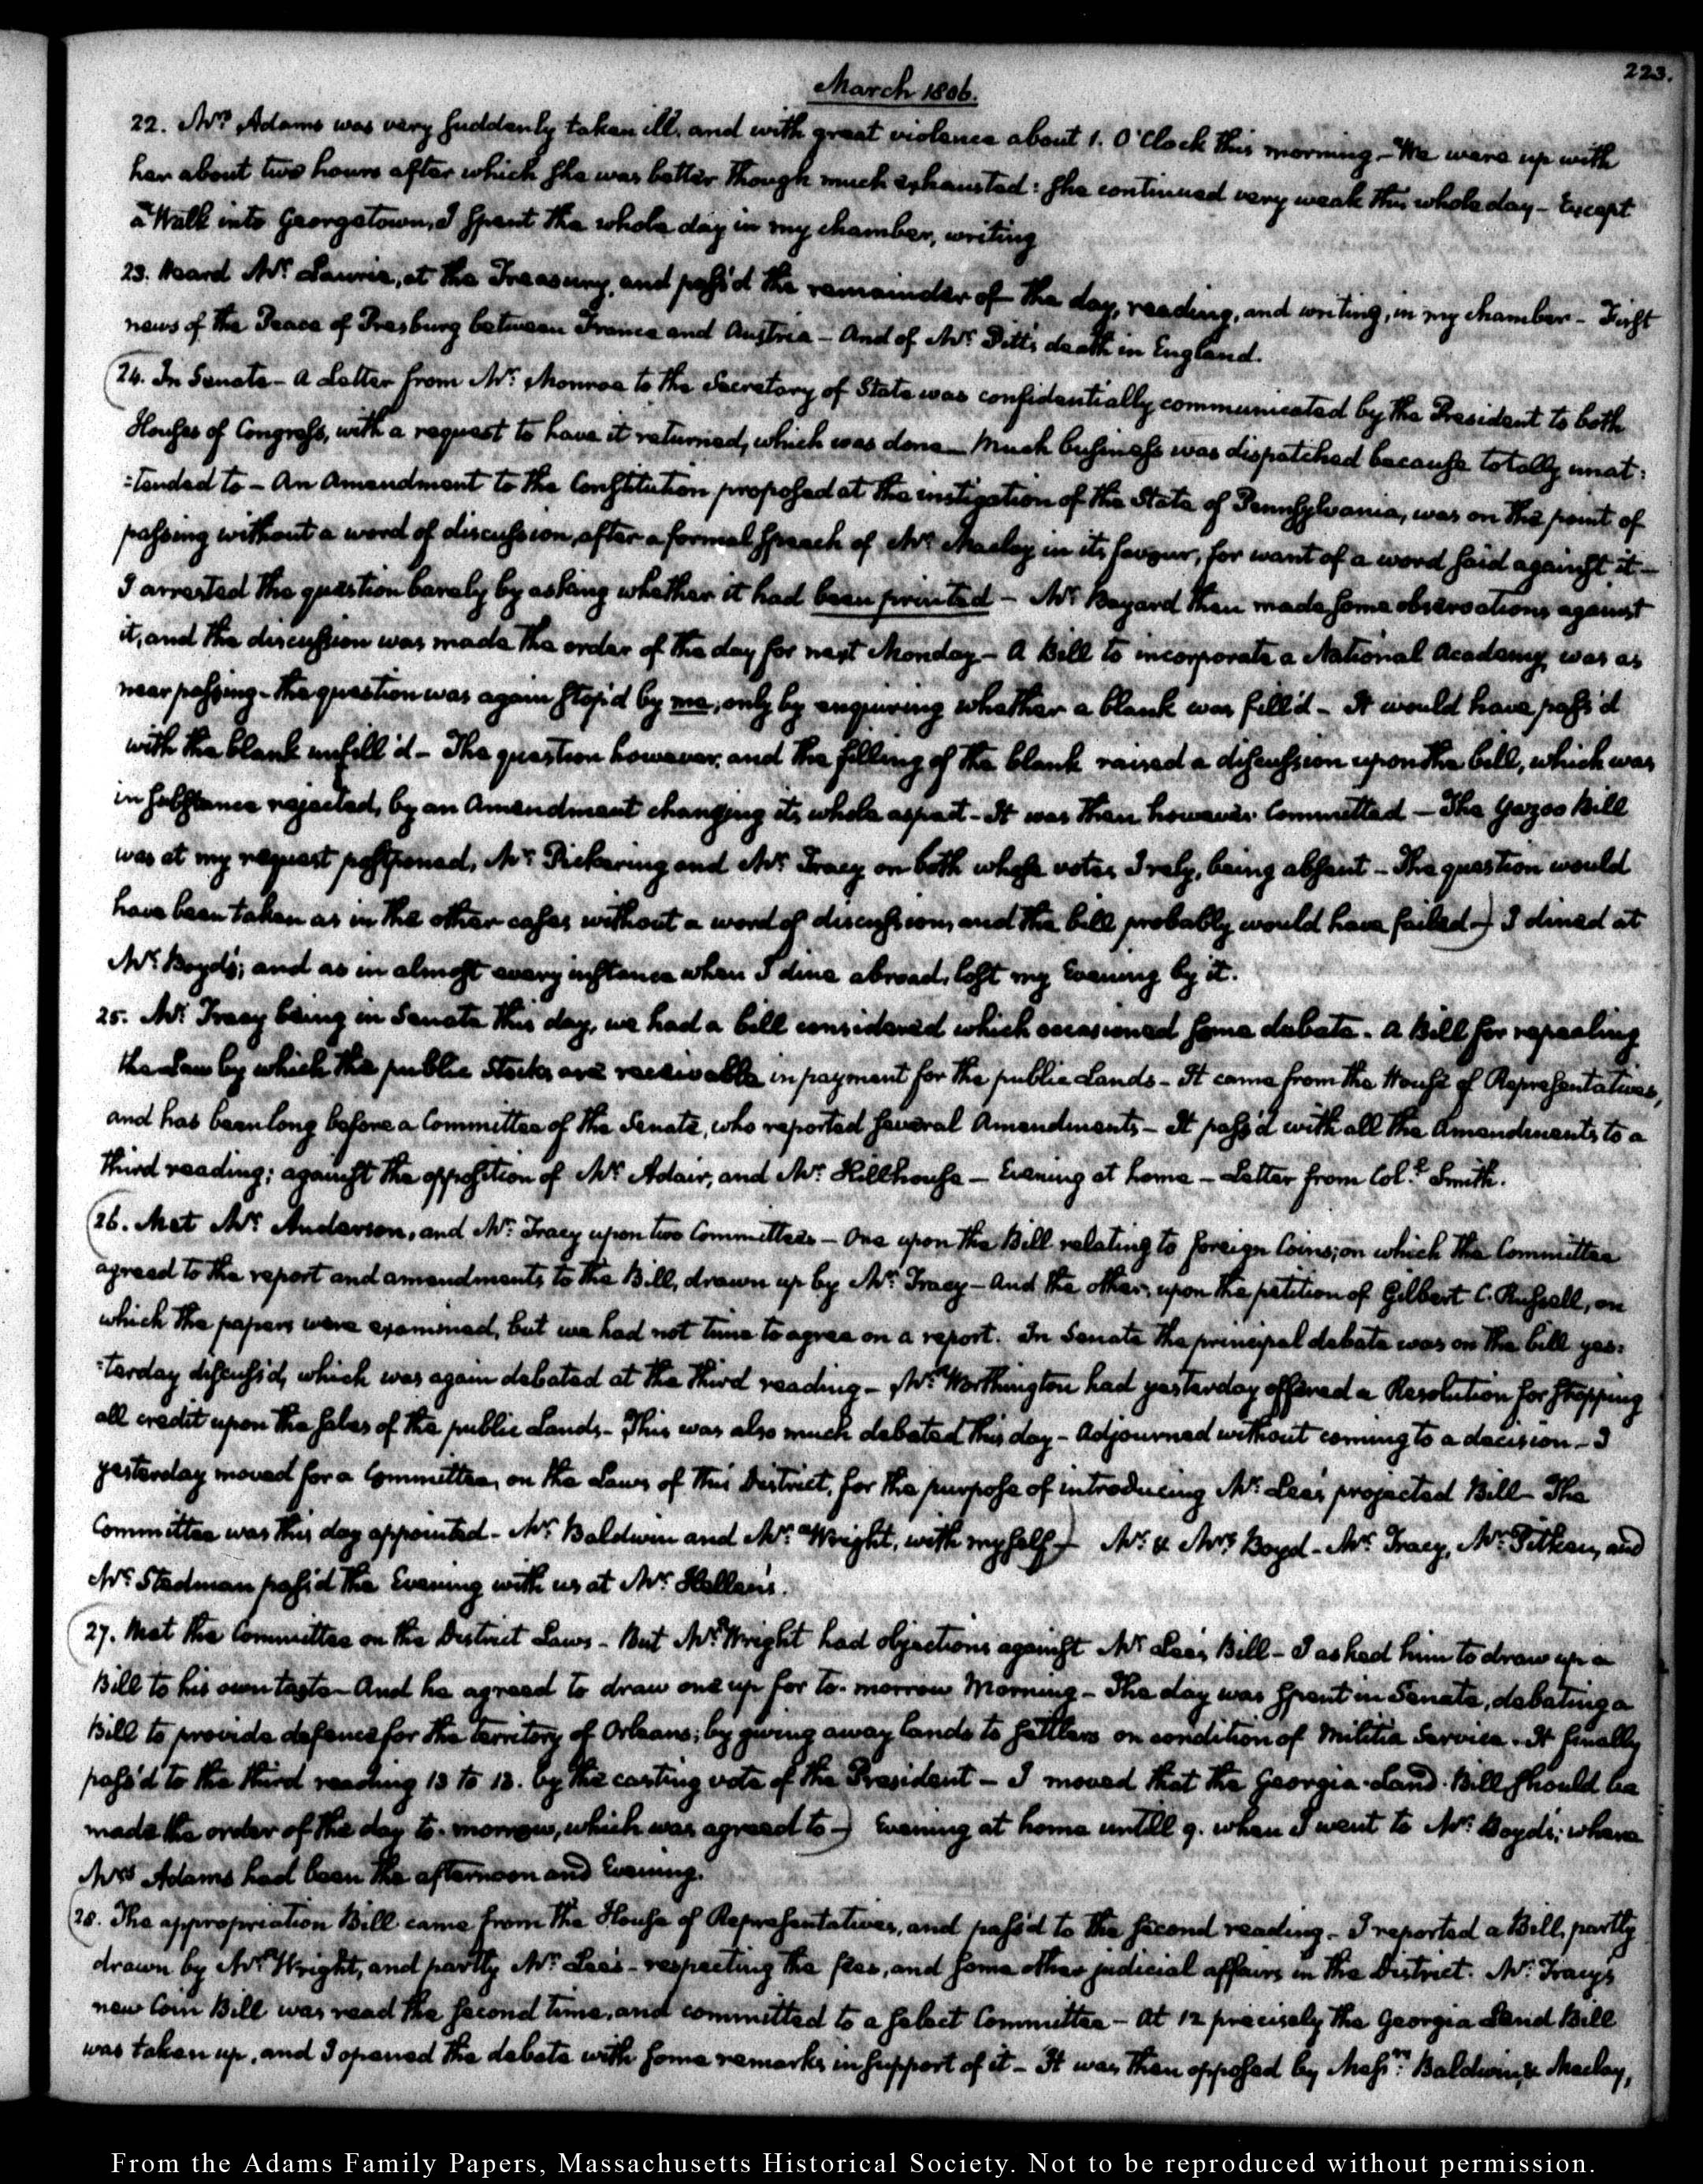 223.
March 1806.
22. Mrs. Adams was very suddenly taken ill, and with great violence about 1. O'Clock this morning – We were up with
her about two hours after which she was better though much exhausted: she continued very weak this whole day – Except
a Walk into Georgetown, I spent the whole day in my chamber, writing
23. Heard Mr. Laurie, at the Treasury, and pass'd the remainder of the day, reading, and writing, in my chamber – First
news of the Peace of Presburg between France and Austria – And of Mr. Pitt's death in England.
24. In Senate – A Letter from Mr. Monroe to the Secretary of State was confidentially communicated by the President to both
Houses of Congress, with a request to have it returned, which was done – Much business was dispatched because totally unat:
:tended to – An Amendment to the Constitution proposed at the instigation of the State of Pennsylvania, was on the point of
passing without a word of discussion, after a formal speech of Mr. Maclay in its favour, for want of a word said against it –
I arrested the question barely by asking whether it had been printed – Mr. Bayard then made some observations against
it, and the discussion was made the order of the day for next Monday – A Bill to incorporate a National Academy, was as
near passing – the question was again stop'd by me, only by enquiring whether a blank was fill'd – It would have pass'd
with the blank unfill'd – The question however, and the filling of the blank raised a discussion upon the bill, which was
in substance rejected, by an Amendment changing its whole aspect – It was then however Committed – The Yazoo Bill
was at my request postponed, Mr. Pickering and Mr. Tracy on both whose votes I rely, being absent – The question would
have been taken as in the other cases without a word of discussion, and the bill probably would have failed –) I dined at
Mr. Boyd's; and as in almost every instance when I dine abroad, lost my Evening by it.
25. Mr. Tracy being in Senate this day, we had a bill considered which occasioned some debate. A Bill for repealing
the Law by which the public Stocks are receivable in payment for the public Lands – It came from the House of Representatives,
and has been long before a Committee of the Senate, who reported several Amendments – It pass'd with all the Amendments to a
third reading; against the opposition of Mr. Adair, and Mr. Hillhouse – Evening at home – Letter from Coll. Smith.
26. Met Mr. Anderson, and Mr. Tracy upon two Committees – One upon the Bill relating to foreign Coins; on which the Committee
agreed to the report and amendments to the Bill, drawn up by Mr. Tracy – And the other, upon the petition of Gilbert C. Russell, on
which the papers were examined, but we had not time to agree on a report. In Senate the principal debate was on the bill yes:
:terday discuss'd, which was again debated at the third reading – Mr. Worthington had yesterday offered a Resolution for stopping
all credit upon the sales of the public Lands – This was also much debated this day – Adjourned without coming to a decision – I
yesterday moved for a Committee, on the Laws of this District, for the purpose of introducing Mr. Lee's projected Bill – The
Committee was this day appointed – Mr. Baldwin and Mr. Wright, with myself –) Mr. & Mrs. Boyd – Mr. Tracy, Mr. Pitkin, and
Mr. Stedman pass'd the Evening with us at Mr. Hellen's.
27. Met the Committee on the District Laws – But Mr. Wright had objections against Mr. Lee's Bill – I asked him to draw up a
Bill to his own taste – And he agreed to draw one up for to-morrow Morning – The day was spent in Senate, debating a
Bill to provide defence for the territory of Orleans; by giving away lands to settlers on condition of Militia Service. It finally
pass'd to the third reading 13 to 13. by the casting vote of the President – I moved that the Georgia-Land-Bill should be
made the order of the day to-morrow, which was agreed to –) Evening at home untill 9. when I went to Mr. Boyd's; where
Mrs. Adams had been the afternoon and Evening.
28. The appropriation Bill came from the House of Representatives, and pass'd to the second reading – I reported a Bill, partly
drawn by Mr. Wright, and partly Mr. Lee's – respecting the fees, and some other judicial affairs in the District. Mr. Tracy's
new Coin Bill was read the second time, and committed to a select Committee – At 12 precisely the Georgia Land Bill
was taken up, and I opened the debate with some remarks in support of it – It was then opposed by Messrs. Baldwin, & Maclay,
From the Adams Family Papers, Massachusetts Historical Society. Not to be reproduced without permission.